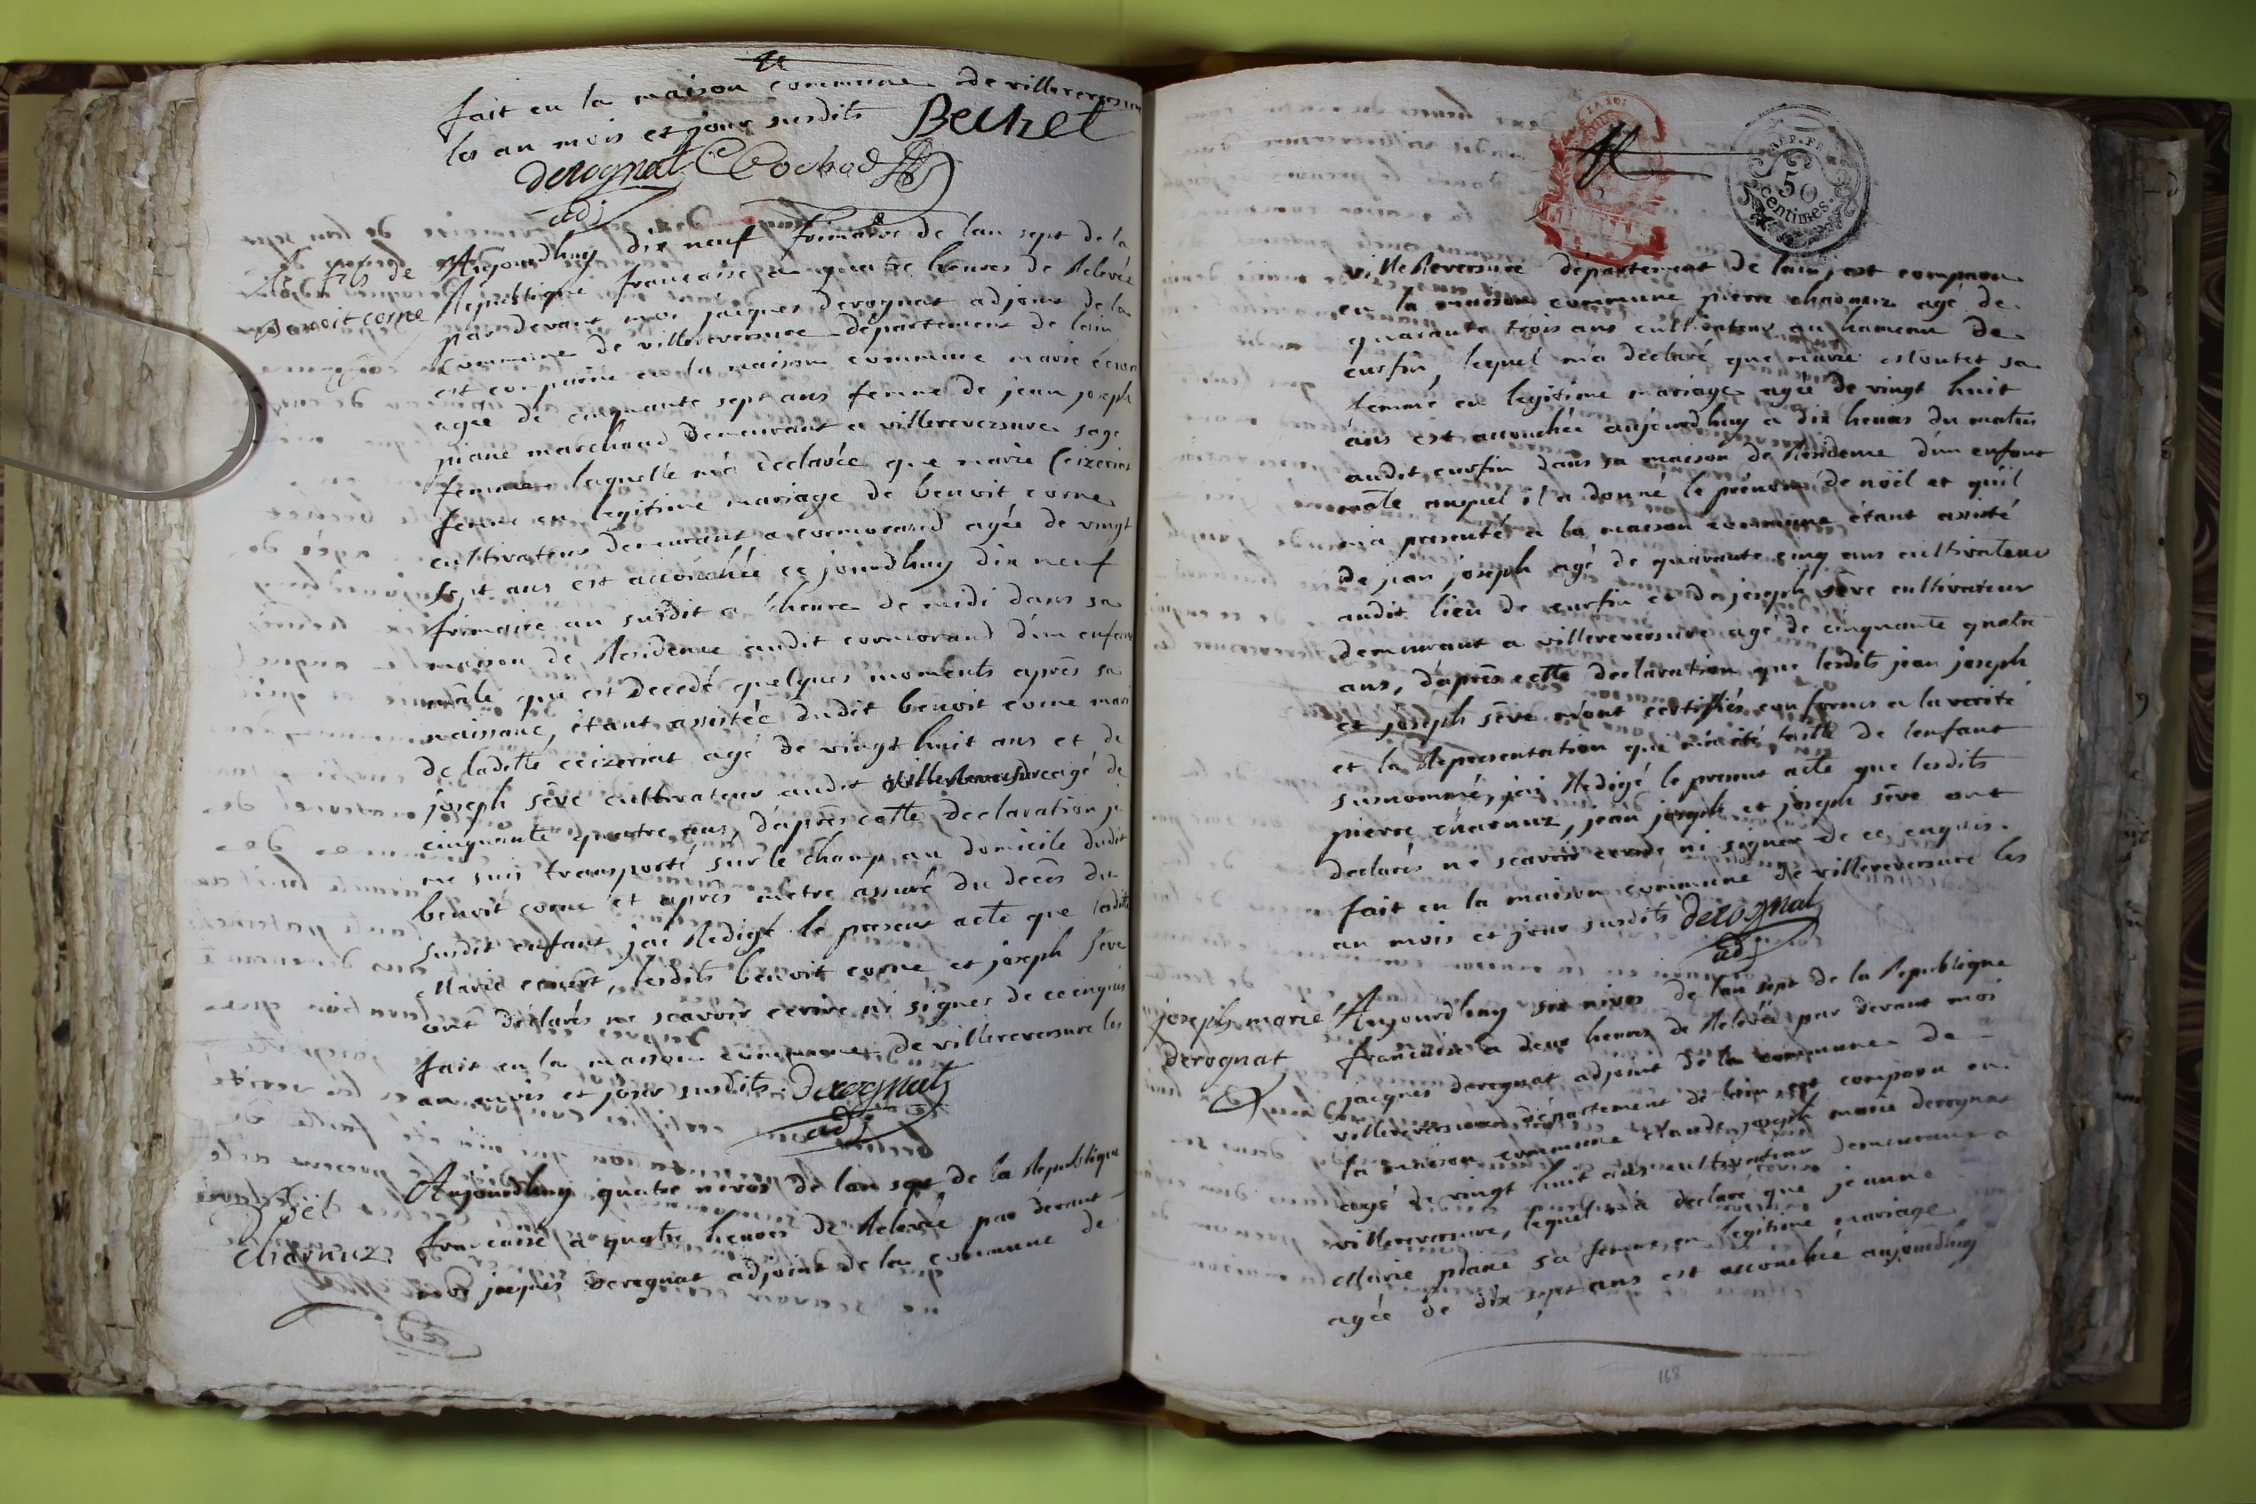 fait en la maison commune de villereversure
les an mois et jour susdits Bechet
derognat Cochod
adj
Un fils de
Benoit corne
Aujourdhuy dix neuf frimaire de lan sept de la
Republique francaise a quatre heures de Relevée
par devant moi jacques derognat adjoint de la
Commune de villereversure département de lain
est comparue en la maison commune marie
agée de cinquante sept ans femme de jean joseph
piane marchand demeurant a villereversure sage
femme laquelle m'a declarée que marie Ceizeriat
femme en legitime mariage de benoit corne
cultivateur demeurant a cormorand agée de vingt
sept ans est accouchée ce jourdhuy dix neuf
frimaire an susdit a l'heure de midi dans sa
maison de Residence audit cormorand d'un enfant
mâle qui est decedé quelques moments après sa
naissance, étant assistée dudit benoit corne mari
de ladette ceizeriat agé de vingt huit ans et de
joseph sêve cultivateur audit villereversure agé de
cinquante quatre ans, d'après cette declaration je
me suis transporté sur le champ au domicile dudit
benoit corne et après m'etre assuré du decès du
susdit enfant, j'ai Redigé le present acte que lesdits
Marie, lesdits benoit corne et joseph sêve
ont déclarés ne scavoir ecrire ni signer de ce enquis
fait en la maison commune de villereversure les
an mois et jour susdits. Derognat
adj
Nöel
charnuz
Aujourdhuy quatre nivos de lan sept de la Republique
francaise a quatre heures de Relevée par devant
moi jacques Derognat adjoint de la commune de
REP. FRA.
50
Centimes.
villeReversure département de lain, est comparu
en la maison commune pierre charnuz agé de
quarante trois ans cultivateur au hameau de
curfin, lequel m'a déclaré que marie sa
femme en legitime mariage agée de vingt huit
ans est accouchée aujourdhuy a dix heures du matin
audit curfin dans sa maison de Residence d'un enfant
mâle auquel il a donné le prénom de nöel et quil
m'a presenté a la maison commune étant assisté
de jean joseph agé de quarante cinq ans cultivateur
audit lieu de curfin et de joseph sêve cultivateur
demeurant a villereversure agé de cinquante quatre
ans, d'après cette declaration que lesdits jean joseph
et joseph sêve m'ont certifiés conforme a la verité
et la Representation que m'a été faitte de l'enfant
susnommé, j'ai Redigé le present acte que lesdits
pierre charnuz, jean joseph et joseph sêve ont
declarés ne scavoir ecrire ni signer de ce enquis.
fait en la maison commune de villereversure les
an mois et jour susdits derognat
adj
joseph marie
derognat
Aujourdhuy six nivos de lan sept de la Republique
francaise a deux heures de Relevée par devant moi
jacques derognat adjoint de la commune de
villereversure département de lain est comparu en
la maison commune claude joseph marie derognat
agé de vingt huit ans cultivateur demeurant a
villereversure, lequel m'a declaré que jeanne
Marie piane sa femme en legitime mariage
agée de dix sept ans est accouchée aujourdhuy
168